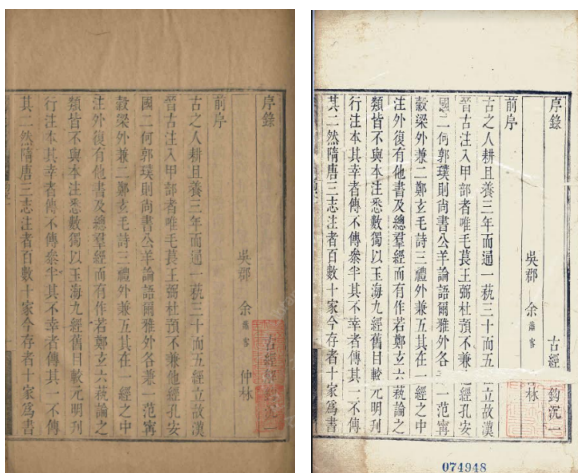 序錄 古經解鉤沉一
吳郡 余蕭客 仲林
前序
古之人耕且養三年而通一蓺三十而五經立故漢
晉古注入甲部者唯毛萇王弼杜預不兼他經孔安
國二何郭璞則尚書公羊論語爾雅外各兼一范甯
穀梁外兼二鄭玄毛詩三禮外兼五其在一經之中
注外復有他書及總羣經而有作若鄭玄六蓺論之
類皆不與本注悉數獨以玉海九經舊目較元明刋
行注本其幸者傳不傳參半其不幸者傳其一不傳
其二然隋唐三志注者百數十家今存者十家爲書
序錄 古經 鉤沉一
吳郡 余蕭客 林
前序
古之人耕且養三年而通一蓺三十而五 立故漢
晉古注入甲部者唯毛萇王弼杜預不兼 經孔安
國二何郭璞則尚書公羊論語爾雅外各兼一范甯
穀梁外兼二鄭玄毛詩三禮外兼五其在一經之中
注外復有他書及總羣經而有作若鄭玄六蓺論之
類皆不與本注悉數獨以玉海九經舊目較元明刋
行注本其幸者傳不傳參半其不幸者傳其一不傳
其二然隋唐三志注者百數十家今存者十家爲書
074948